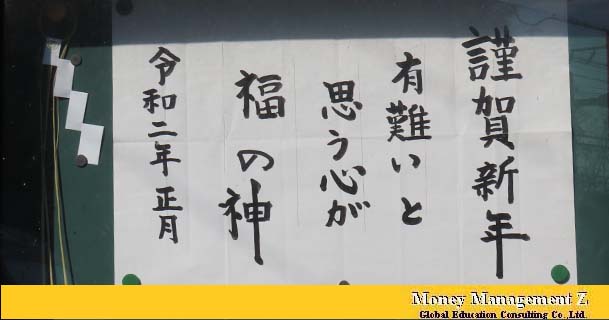 謹賀新年
有難いと
思う心が
福の神
令和二年 正月
Money Management Z
Global Education Consulting Co.,Ltd.